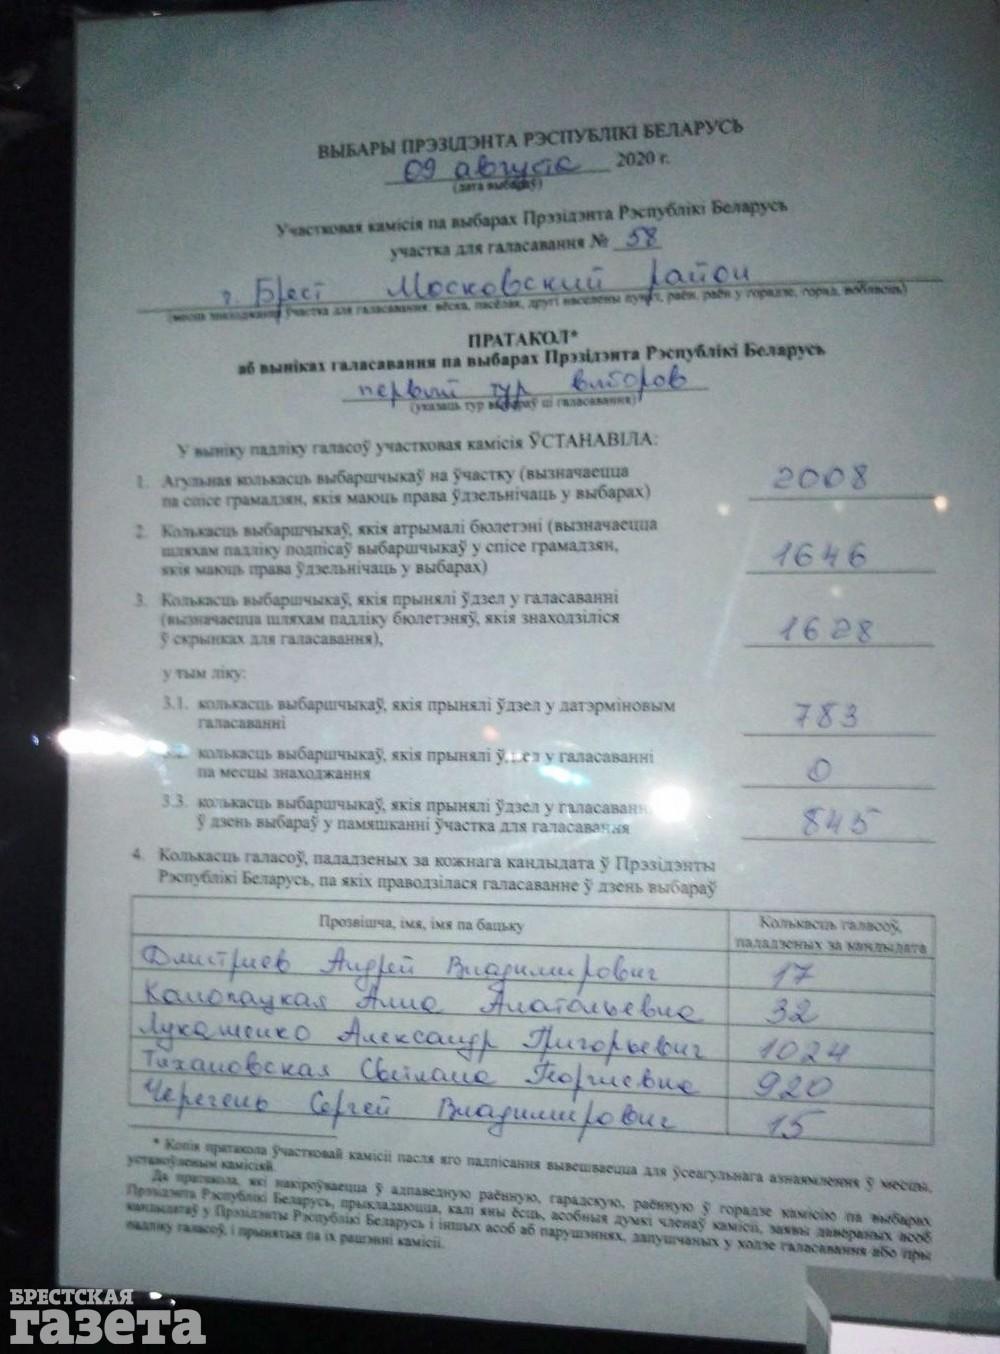 ВЫБАРЫ ПРЭЗІДЭНТА РЭСПУБЛІКІ БЕЛАРУСЬ
09 августа 2020 г.
(дата выбараў)
Участковая камісія па выбарах Прэзідэнта Рэспублікі Беларусь
участка для галасавання № 58
г. Брест Московский район
(месца знаходжання ўчастка для галасавання: вёска, пасёлак, другі населены пункт, раён, раён у горадзе, горад, вобласць)
ПРАТАКОЛ*
аб выніках галасавання па выбарах Прэзідэнта Рэспублікі Беларусь
первый тур выборов
(указаць тур выбараў ці галасавання)
У выніку падліку галасоў участковая камісія ЎСТАНАВІЛА:
1. Агульная колькасць выбаршчыкаў на ўчастку (вызначаецца
па спісе грамадзян, якія маюць права ўдзельнічаць у выбарах) 2008
2. Колькасць выбаршчыкаў, якія атрымалі бюлетэні (вызначаецца
шляхам падліку подпісаў выбаршчыкаў у спісе грамадзян,
якія маюць права ўдзельнічаць у выбарах) 1646
3. Колькасць выбаршчыкаў, якія прынялі ўдзел у галасаванні
(вызначаецца шляхам падліку бюлетэняў, якія знаходзіліся
ў скрынках для галасавання), 1628
у тым ліку:
3.1. колькасць выбаршчыкаў, якія прынялі ўдзел у датэрміновым
галасаванні 783
3.2. колькасць выбаршчыкаў, якія прынялі ўдзел у галасаванні
па месцы знаходжання 0
3.3. колькасць выбаршчыкаў, якія прынялі ўдзел у галасаванн
ў дзень выбараў у памяшканні ўчастка для галасавання 845
4. Колькасць галасоў, пададзеных за кожнага кандыдата ў Прэзідэнты
Рэспублікі Беларусь, па якіх праводзілася галасаванне ў дзень выбараў
Прозвішча, імя, імя па бацьку Колькасць галасоў,
пададзеных за кандыдата
Дмитриев Андрей Владимирович 17
Канопацкая Анна Анатольевна 32
Лукашенко Александр Григорьевич 1024
Тихановская Светлана Георгиевна 920
Черечень Сергей Владимирович 15
* Копія пратакола ўчастковай камісіі пасля яго падпісання вывешваецца для ўсеагульнага азнаямлення ў месцы,
устаноўленым камісіяй.
Да пратакола, які накіроўваецца ў адпаведную раённую, гарадскую, раённую ў горадзе камісію па выбарах
Прэзідэнта Рэспублікі Беларусь, прыкладаюцца, калі яны ёсць, асобныя думкі членаў камісіі, заявы давераных асоб
кандыдатаў у Прэзідэнты Рэспублікі Беларусь і іншых асоб аб парушэннях, дапушчаных у ходзе галасавання або пры
падліку галасоў, і прынятыя па іх рашэнні камісіі.
БРЕСТСКАЯ
газета